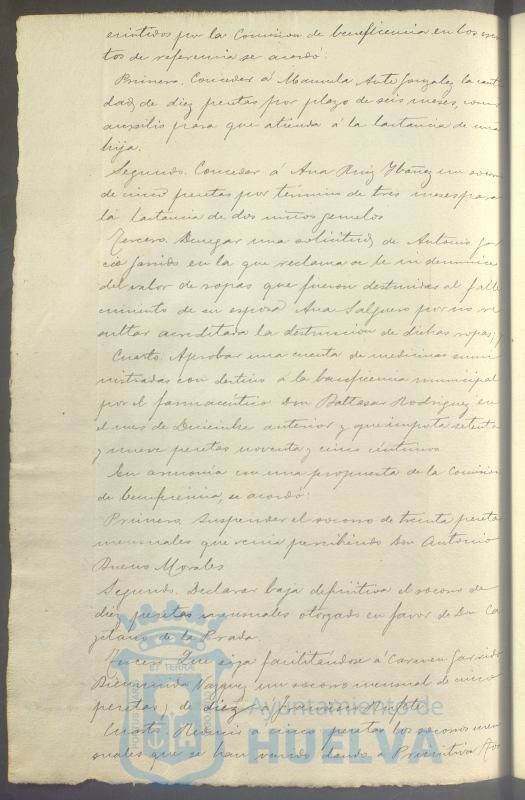 emitidos por la Comision de beneficencia en los escri
tos de referencia se acordó:
Primero. Conceder á Manuela Ante Gonzalez la canti
dad de diez pesetas por plazo de seis meses, como
auxilio para que atienda á la lactancia de una
hija.
Segundo. Conceder á Ana Ruiz Ybañez un socorro
de cinco pesetas por término de tres meses para
la lactancia de dos niños gemelos
Tercero. Denegar una solicitud de Antonio Gar
cia Garrido en la que reclama se le indemnice
del valor de ropas que fueron destruidas al falle
cimiento de su esposa Ana Salguero por no re
sultar acreditada la destruccion de dichas ropas; y
Cuarto. Aprobar una cuenta de medicinas sumi
nistradas con destino á la beneficencia municipal
por el farmacéutico Don Baltasar Rodriguez en
el mes de Diciembre anterior y que importa setenta
y nueve pesetas noventa y cinco céntimos
En armonía con una propuesta de la Comision
de beneficencia, se acordó:
Primero. Suspender el socorro de treinta pesetas
mensuales que venia percibiendo Don Antonio
Bueno Morales
Segundo. Declarar baja definitiva el socorro de
diez pesetas mensuales otorgado en favor de Don Ca
yetano de la Prada.
Tercero. Que siga facilitándose á Carmen Garrido
Bienvenida Vazquez un socorro mensual de cinco
pesetas y de diez a Francisca
Cuarto. Reducir a cinco pesetas los socorros men
suales que se han venido dando a Primitiva
ET TERRA
PORTUS MARIS
CUSTODIA
Ayuntamiento de
HUELVA